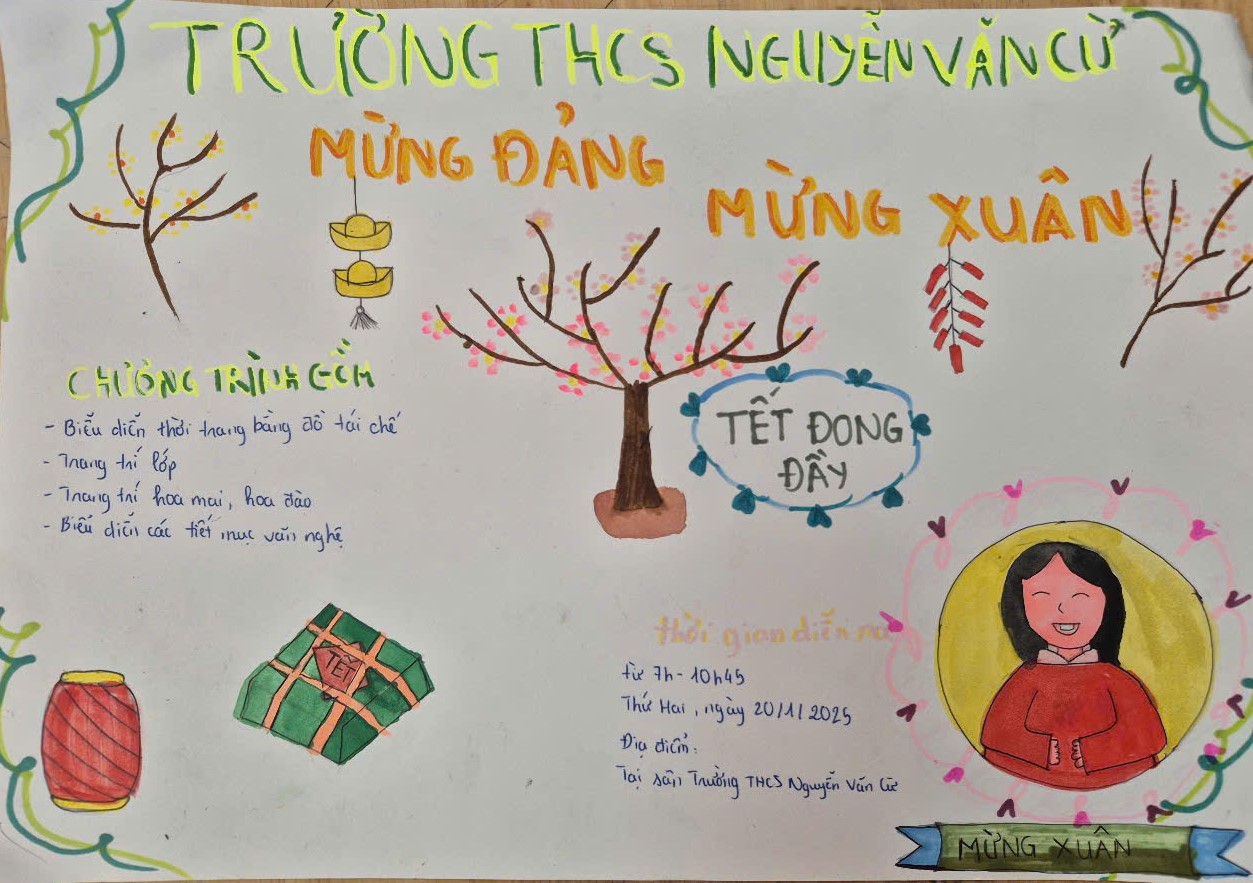 TRƯỜNG THCS NGUYỄN VĂN CỪ
MỪNG ĐẢNG
MỪNG XUÂN
CHƯƠNG TRÌNH GỒM
- Biểu diễn thời trang bằng đồ tái chế
- Trang trí lớp
- Trang trí hoa mai, hoa đào
- Biểu diễn các tiết mục văn nghệ
TẾT ĐONG
ĐẦY
TẾT
thời gian diễn ra
từ 7h - 10h45
Thứ Hai, ngày 20/1/2025
Địa điểm:
Tại sân Trường THCS Nguyễn Văn Cừ
MỪNG XUÂN